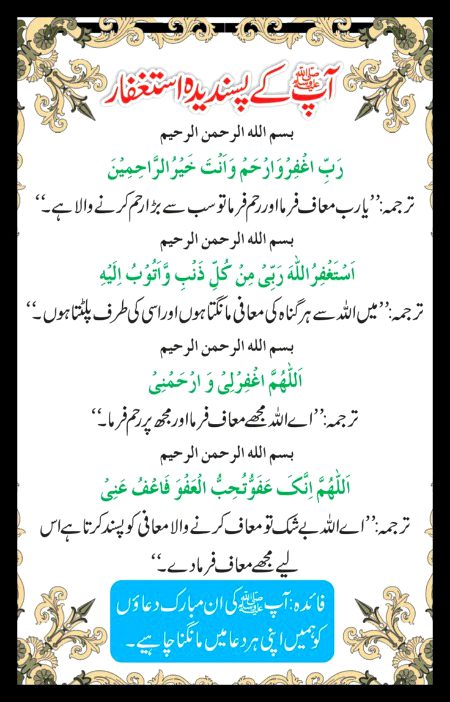 آپ ﷺ کے پسندیدہ استغفار
بسم الله الرحمن الرحيم
رَبِّ اغْفِرْ وَارْحَمْ وَاَنْتَ خَيْرُ الرَّاحِمِيْنَ
ترجمہ: ’’یا رب معاف فرما اور رحم فرما تو سب سے بڑا رحم کرنے والا ہے۔‘‘
بسم الله الرحمن الرحيم
اَسْتَغْفِرُ اللّٰهَ رَبِّیْ مِنْ كُلِّ ذَنْبٍ وَّاَتُوْبُ اِلَيْهِ
ترجمہ: ’’میں اللہ سے ہر گناہ کی معافی مانگتا ہوں اور اسی کی طرف پلٹتا ہوں۔‘‘
بسم الله الرحمن الرحيم
اَللّٰهُمَّ اغْفِرْلِیْ وَ ارْحَمْنِیْ
ترجمہ: ’’اے اللہ مجھے معاف فرما اور مجھ پر رحم فرما۔‘‘
بسم الله الرحمن الرحيم
اَللّٰهُمَّ اِنَّکَ عَفُوٌّ تُحِبُّ الْعَفْوَ فَاعْفُ عَنِّیْ
ترجمہ: ’’اے اللہ بے شک تو معاف کرنے والا معافی کو پسند کرتا ہے اس
لیے مجھے معاف فرما دے۔‘‘
فائدہ: آپ ﷺ کی ان مبارک دعاؤں
کو ہمیں اپنی ہر دعا میں مانگنا چاہیے۔